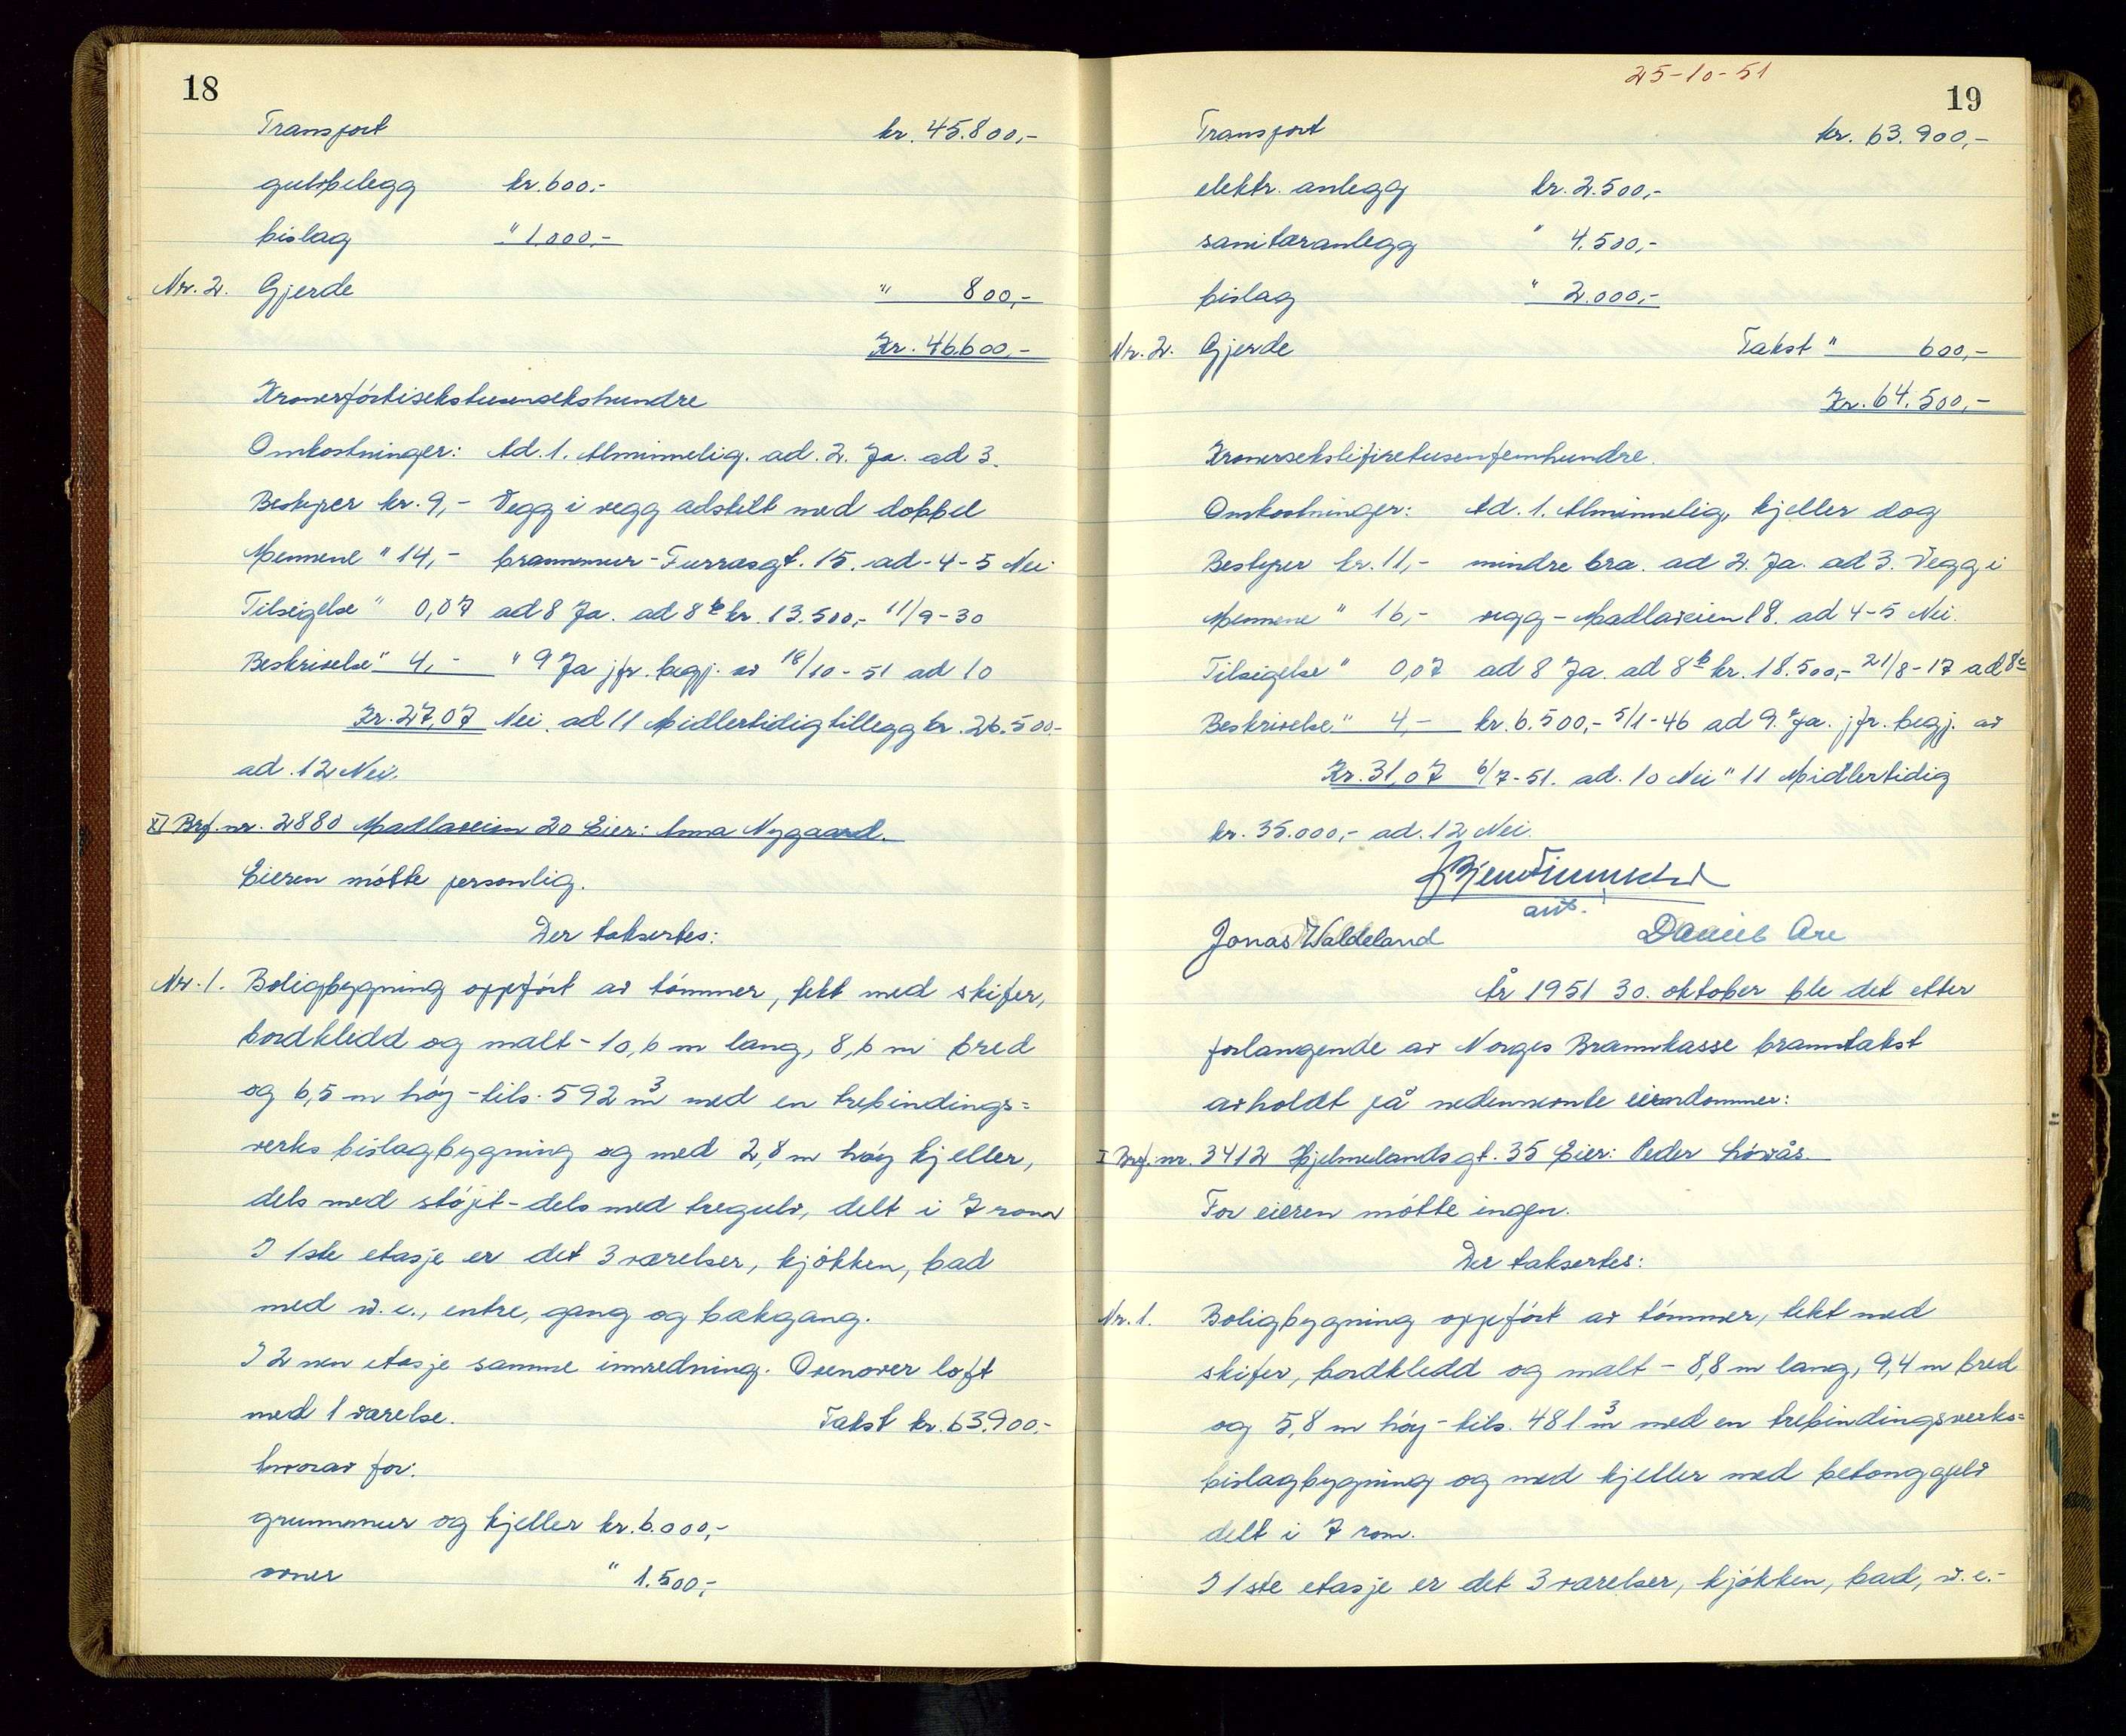 18
Transport kr. 45.800,-
gulvbelegg kr. 600,-
bislag " 1.000,-
Nr. 2. Gjerde " 800,-
Kr. 46.600,-
Kronerførtisekstusensekshundre
Omkostninger: Ad. 1. Alminnelig. ad. 2. Ja. ad 3.
Bestyrer kr. 9,- Vegg i vegg adskilt med dobbel
Mennene " 14,- brannmur - Furrasgt. 15. ad - 4 - 5 Nei
Tilsigelse " 0,07 ad 8 Ja. ad 8 b kr. 13.500,- 11/9-30
Beskrivelse " 4,- " 9 Ja jfr. begj. av 18/10-51 ad 10
Kr. 27,07 Nei. ad 11 Midlertidig tillegg kr. 26.500.-
ad. 12 Nei.
XI Brf. nr. 2880 Madlaveien 20 Eier: Anna Nygaard.
Eieren møtte personlig.
Der taksertes:
Nr. 1. Boligbygning oppført av tømmer, tekt med skifer,
bordkledd og malt - 10,6 m lang, 8,6 m bred
og 6,5 m høy - tils. 592 m3 med en trebindings=
verks bislagbygning og med 2,8 m høy kjeller,
dels med støpt - dels med tregulv, delt i 7 rom
I 1ste etasje er det 3 værelser, kjøkken, bad
med w.c., entre, gang og bakgang.
I 2nen etasje samme innredning. Ovenover loft
med 1 værelse. Takst kr. 63.900,-
hvorav for:
grunnmur og kjeller kr. 6.000,-
ovner " 1.500,-
25-10-51
19
Transport kr. 63.900,-
elektr. anlegg kr. 2.500,-
sanitæranlegg " 4.500,-
bislag " 2.000,-
Nr. 2. Gjerde Takst " 600,-
Kr. 64.500,-
Kronersekstifiretusenfemhundre.
Omkostninger: Ad. 1. Alminnelig, kjeller dog
Bestyrer kr. 11,- mindre bra. ad 2. Ja. ad 3. Vegg i
Mennene " 16,- vegg - Madlaveien 18. ad 4-5 Nei.
Tilsigelse " 0,07 ad 8 Ja. ad 8 b kr. 18.500,- 21/8-17 ad 8c
Beskrivelse " 4,- kr. 6.500,- 5/1-46 ad 9. Ja. jfr. begj. av
Kr. 31,07 6/7-51. ad. 10 Nei " 11 Midlertidig
kr. 35.000,- ad. 12 Nei.
Jonas Waldeland Daniel Are
År 1951 30. oktober ble det etter
forlangende av Norges Brannkasse branntakst
avholdt på nedennevnte eiendommer:
I Brf. nr. 3412 Hjelmelandsgt. 35 Eier: Peder Løvås.
For eieren møtte ingen.
Der taksertes:
Nr. 1. Boligbygning oppført av tømmer, tekt med
skifer, bordkledd og malt - 8,8 m lang, 9,4 m bred
og 5,8 m høy - tils. 481 m3 med en trebindingsverks=
bislagbygning og med kjeller med betonggulv
delt i 7 rom.
I 1ste etasje er det 3 værelser, kjøkken, bad, w.c.-